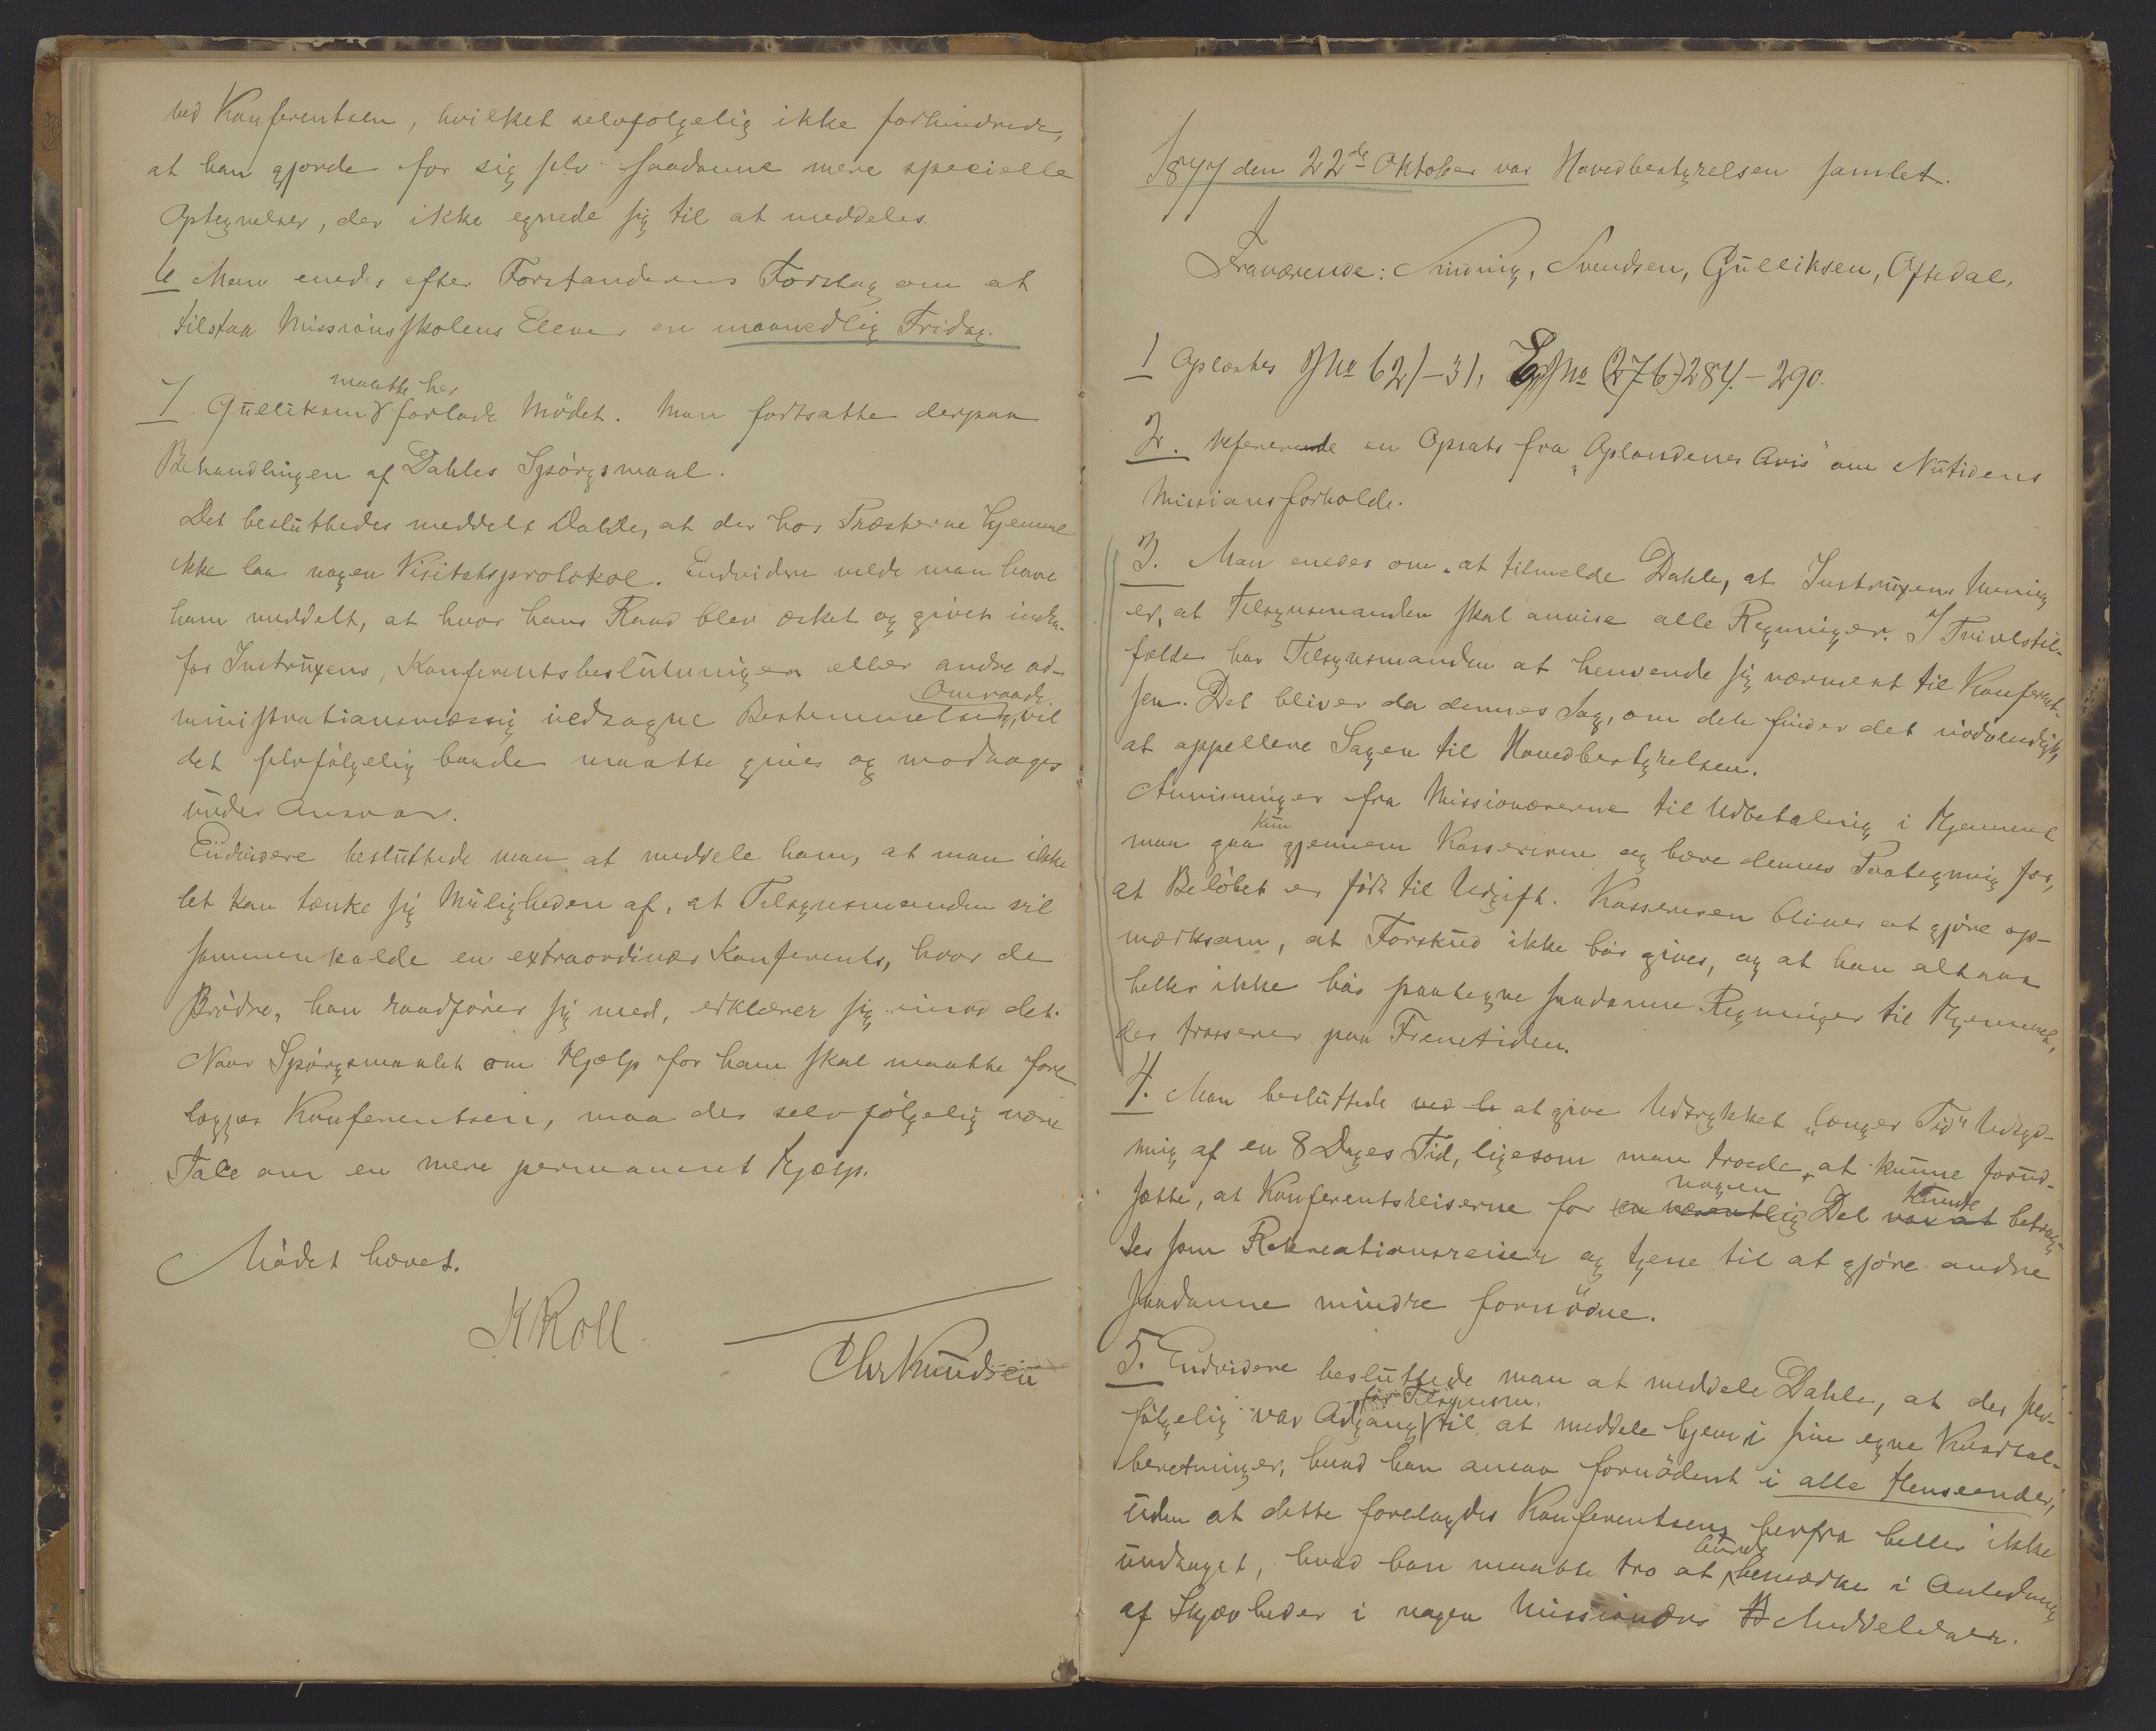 ved Konferentsen, hvilket selvfølgelig ikke forhindrede,
at han gjorde for sig selv saadanne mere specielle
Optegnelser, der ikke egnede sig til at meddeles
6 Man enedes efter Forstanderens Forslag om at
tilstaa Missionsskolens Elever en maanedlig Fridag.
7. Gulliksen maatte her forlade Mödet. Man fortsatte derpaa
Behandlingen af Dahles Spörgsmaal.
Det besluttedes meddelt Dahle, at der hos Præsterne hjemme
ikke laa nogen Visitatsprotokol. Endvidere vilde man have
ham meddelt, at hvor hans Raad blev æsket og givet inden-
for Instruxens, Konferentsbeslutninger eller andre ad-
ministrationsmæssig uddragne Bestemmelser Omraade, vil
det selvfølgelig baade maatte gives og modtages
under Ansvar.
Endvidere besluttede man at meddele ham, at man ikke
let kan tænke sig Muligheden af, at Tilsynsmanden vil
sammenkalde en extraordinær Konferents, hvor de
Brødre, han raadförer sig med, erklærer sig imod det.
Naar Spörgsmaalet om Hjælp for ham skal maatte fore-
lægges Konferentsen, maa der selvfölgelig være
Tale om en mere permanent Hjælp.
Mödet hævet.
K Roll
Chr Knudsen
1877 den 22de Oktober var Hovedbestyrelsen samlet.
Fraværende: Sinding, Svendsen, Gulliksen, Oftedal.
1 Oplæstes JNo 621-31, EgJNo (276) 284-290.
2. Refererede en Opsats fra "Oplandenes Avis" om Nutidens
Missionsforholde.
3. Man enedes om at tilmelde Dahle, at Instruxens Mening
er, at Tilsynsmanden skal anvise alle Regninger. I Tvivlstil-
fælde har Tilsynsmanden at henvende sig nærmest til Konferent-
sen. Det bliver da dennes Sag, om den finder det nödvendigt,
at appellere Sagen til Hovedbestyrelsen.
Anvisninger fra Missionærerne til Udbetaling i Hjemmet
maa kun gaa gjennem Kassereren og bære dennes Paategning for,
at Belöbet er fört til Udgift. Kassereren bliver at gjöre op-
mærksom, at Forskud ikke bör gives, og at han altsaa
heller ikke bör paategne saadanne Regninger til Hjemmet,
der trasserer paa Fremtiden.
4. Man besluttede ved be at give Udtrykket "længer Tid" Udtyd-
ning af en 8 Dages Tid, ligesom man troede, at kunne forud-
sætte, at Konferentsreiserne for en væsentlig nogen Del var at kunde betrag-
tes som Rekreationsreiser og tjene til at gjöre andre
saadanne mindre fornödne.
5. Endvidere besluttede man at meddele Dahle, at der selv-
fölgelig var Adgang for Tilsynsm. til at meddele hjem i sine egne Kvartal-
beretninger, hvad han ansaa fornödent i alle Henseender,
uden at dette forelagdes Konferentsen, herfra heller ikke
undtaget, hvad han maatte tro at burde bemærke i Anledning
af Skjævheder i nogen Missionærs Meddelelser.